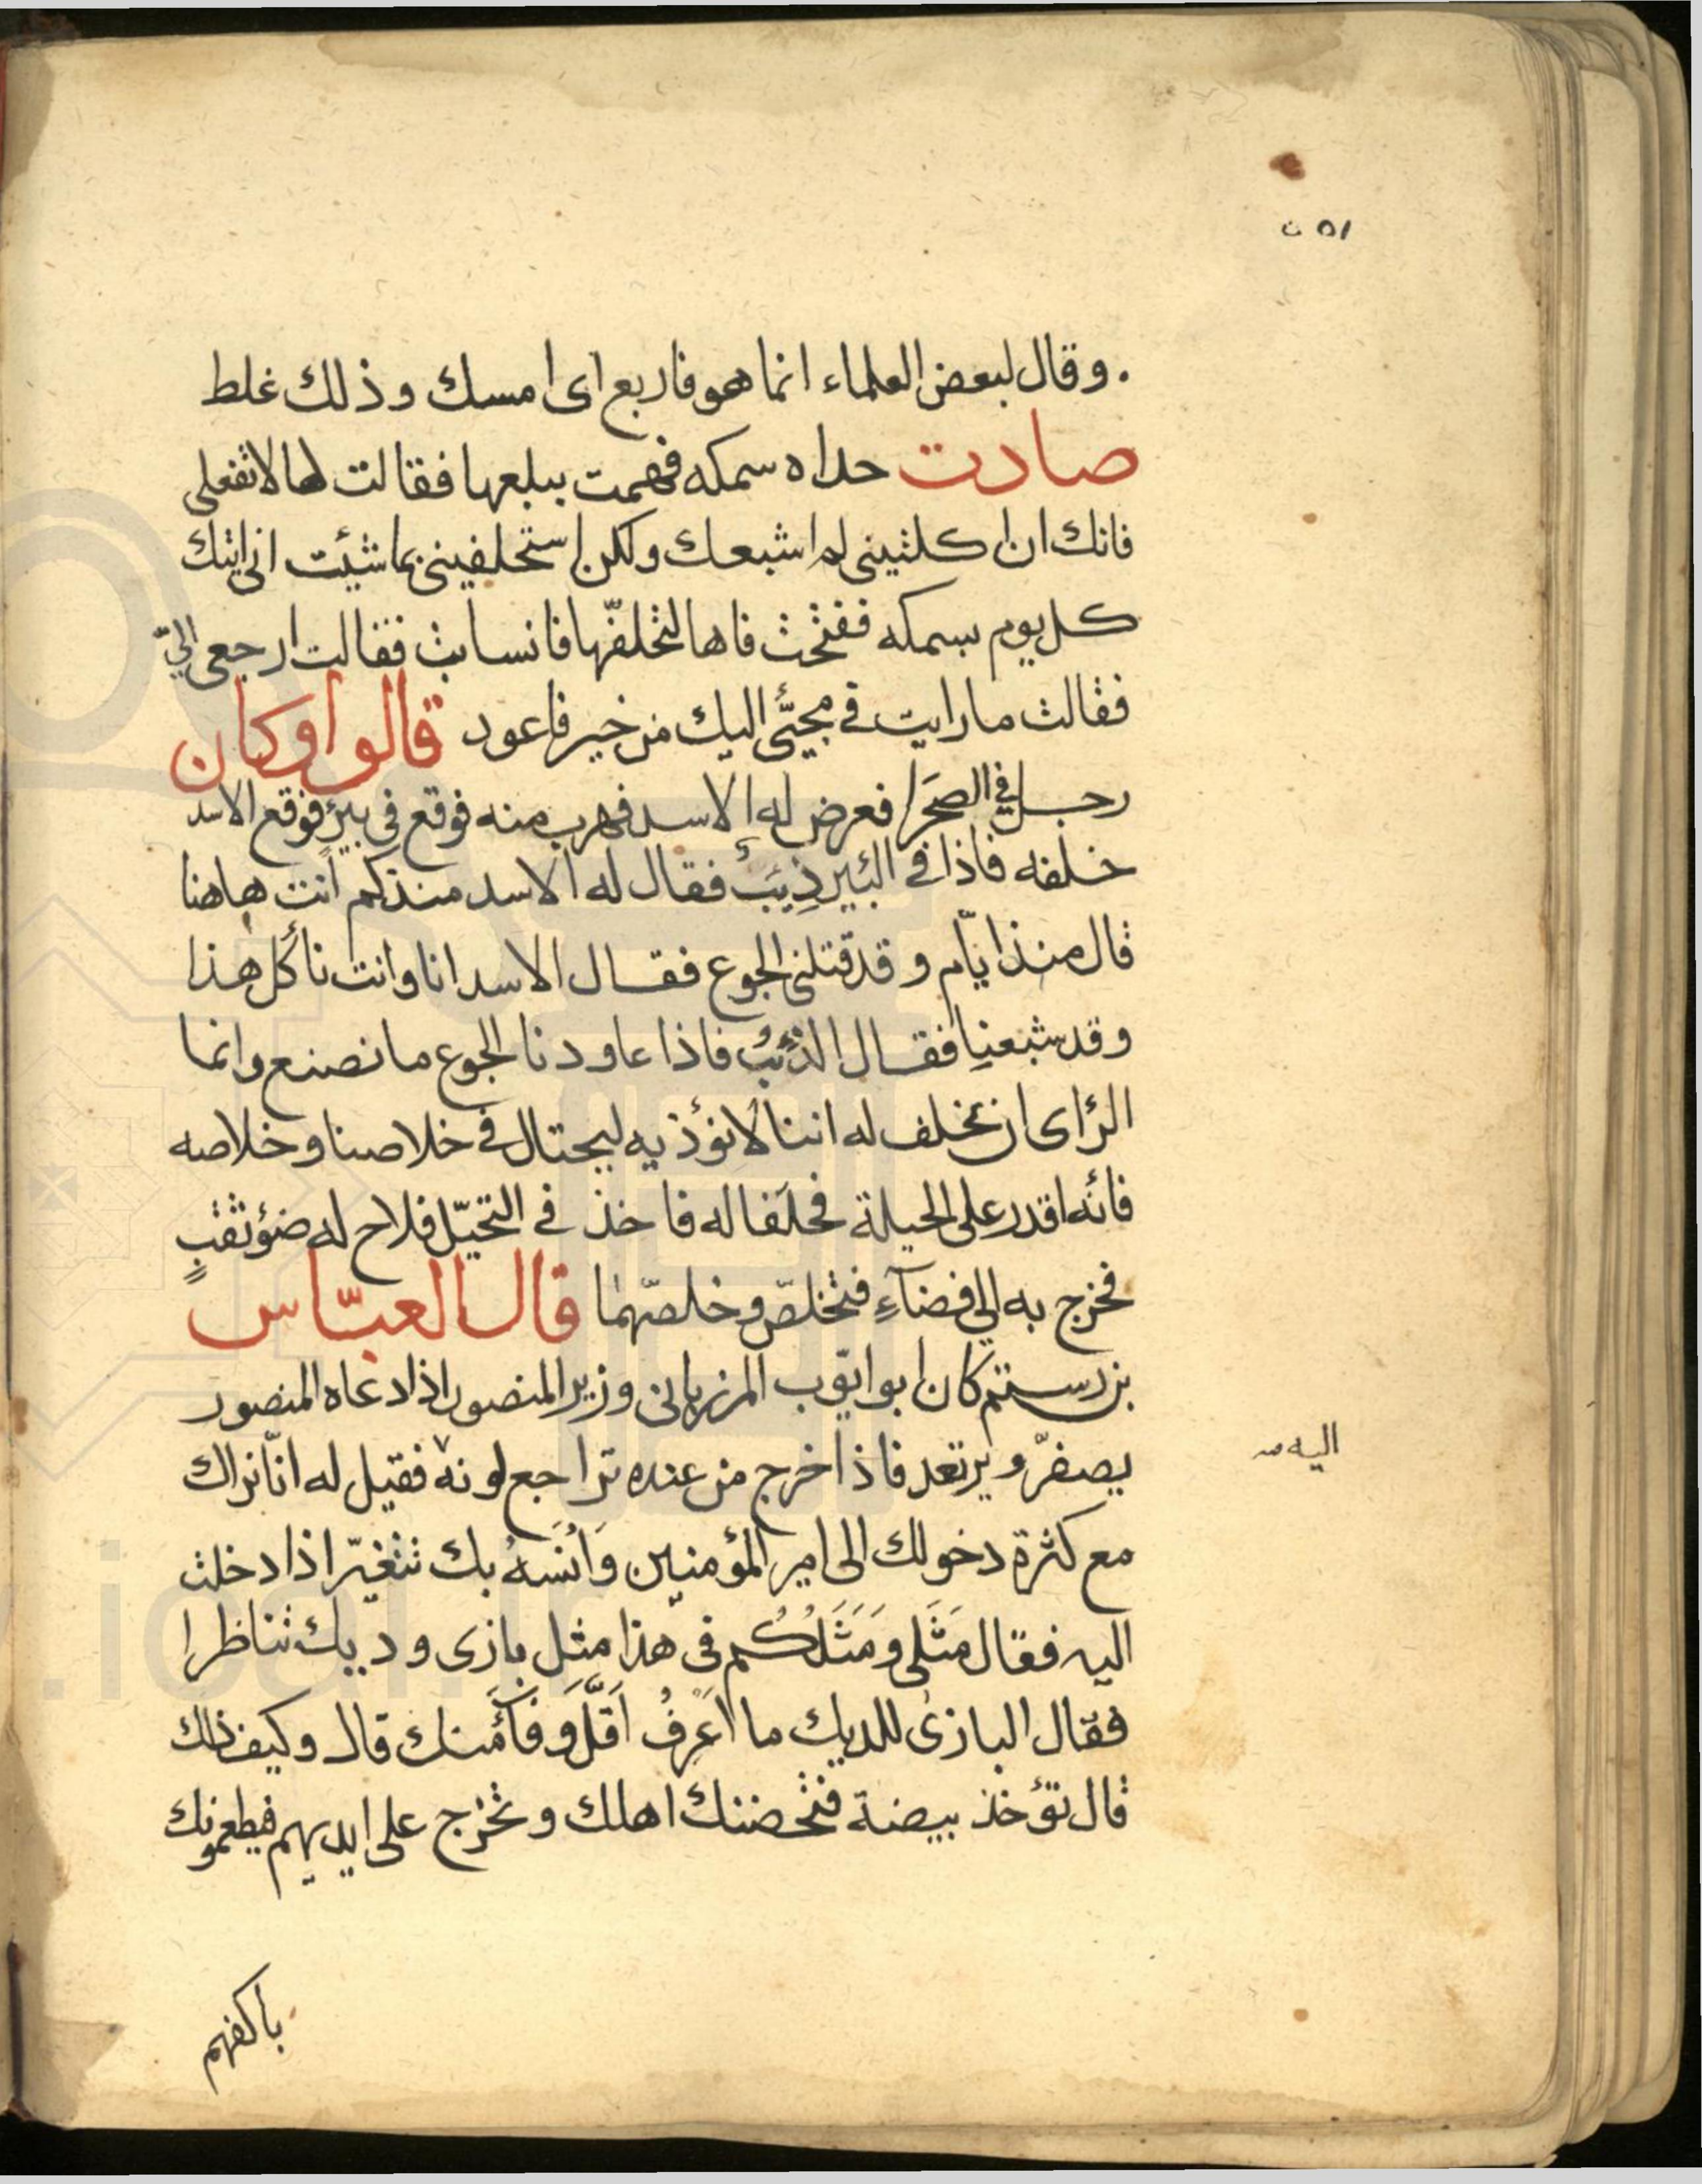 ٥١ ن
. وقال لبعض العلماء انما هو فاربع اى امسك وذلك غلط
صادت حداه سمكه فهمت ببلعها فقالت لها لا تفعلى
فانك ان كلتينى لم اشبعك ولكن استحلفينى بما شئت انى اتيك
كل يوم بسمكه ففتحت فاها لتحلفّها فانسابت فقالت ارجعى اليّ
فقالت ما رايت فى مجيئى اليك من خير فاعود قالوا وكان
رجل فى الصحرا فعرض له الاسد فهرب منه فوقع فى بير فوقع الاسد
خلفه فاذا فى البئير ذِيبٌ فقال له الاسد منذكم انت هاهنا
قال منذ ايّام وقد قتلنى الجوع فقال الاسد انا وانت نأكل هذا
وقد شبعنا فقال الذئبُ فاذا عاودنا الجوع ما نصنع وانما
الرّاى ان نحلف له اننا لا نؤذيه ليحتال فى خلاصنا وخلاصه
فانّه اقدر على الحيلة فحلفا له فاخذ فى التحيّل فلاح له ضؤ ثقبٍ
فخرج به الى فضآءٍ فتخلصّ وخلصّهما قال العبّاس
بن رستم كان ابو ايّوب المرزبانى وزير المنصور اذا دعاه المنصور
يصفرّ ويرتعد فاذا خرج من عنده تراجع لونه فقيل له انّا نراك
مع كثرة دخولك الى امير المؤمنين وَاُنسَهُ بك تتغيّر اذا دخلت
اليه فقال مَثَلى ومَثَلُكُم فى هذا مثل بازى وديك تناظرا
فقال البازى للديك ما اَعرِفُ اَقَلَّ وَفَآءً منك قال وكيف ذلك
قال تؤخذ بيضة فتحضنك اهلك وتخرج على ايديهم فيطعمونك
اليه
باكفهم